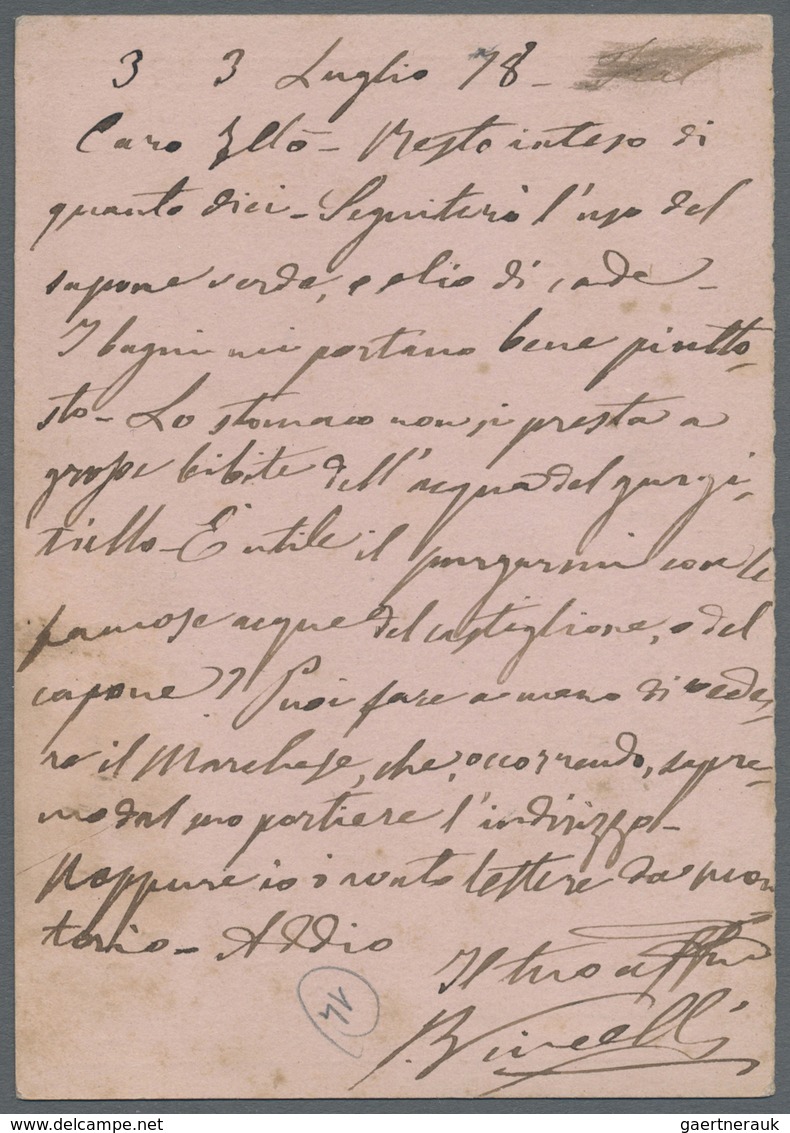 3 3 Luglio 78 -
Caro - Resto inteso di
quanto dici - Seguiterò l'uso del
sapone verde, e olio di cade -
I bagni mi portano bene piutto-
sto - Lo stomaco non si presta a
grosse bibite dell'acqua del gurgi-
tiello - È utile il purgarmi con le
famose acque del castiglione, o del
capone? Puoi fare a meno di vede-
re il Marchese, che, occorrendo, sapre-
mo dal suo portiere l'indirizzo -
Neppure io ò avuto lettere da
Addio
Il tuo aff
delcampe.net
gaertnerauk